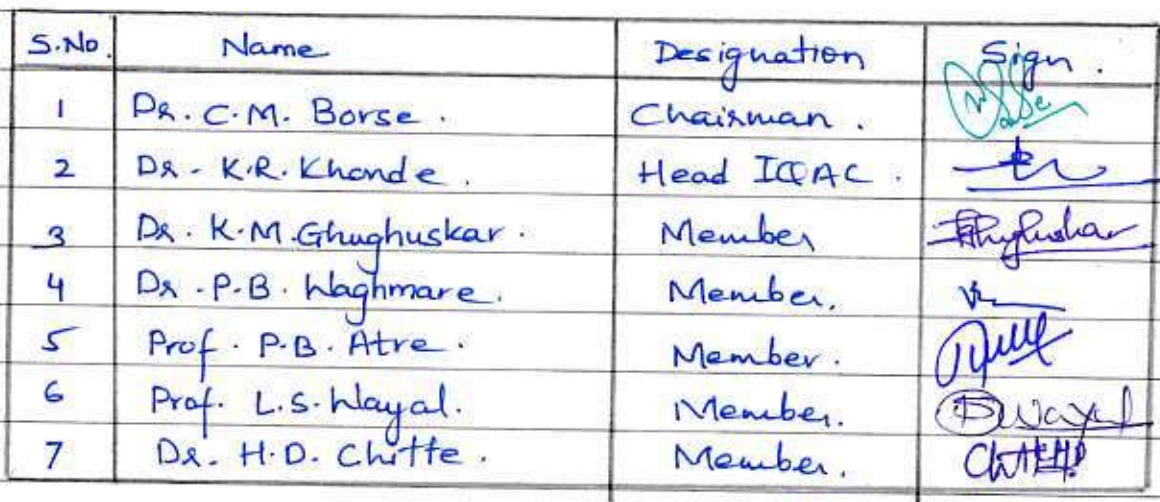 S.No. Name Designation Sign.
1 Dr. C.M. Borse. Chairman.
2 Dr. K.R. Khonde. Head IQAC.
3 Dr. K.M. Ghughuskar. Member
4 Dr. P.B. Waghmare. Member.
5 Prof. P.B. Atre. Member.
6 Prof. L.S. Wayal. Member.
7 Dr. H.D. Chitte. Member.